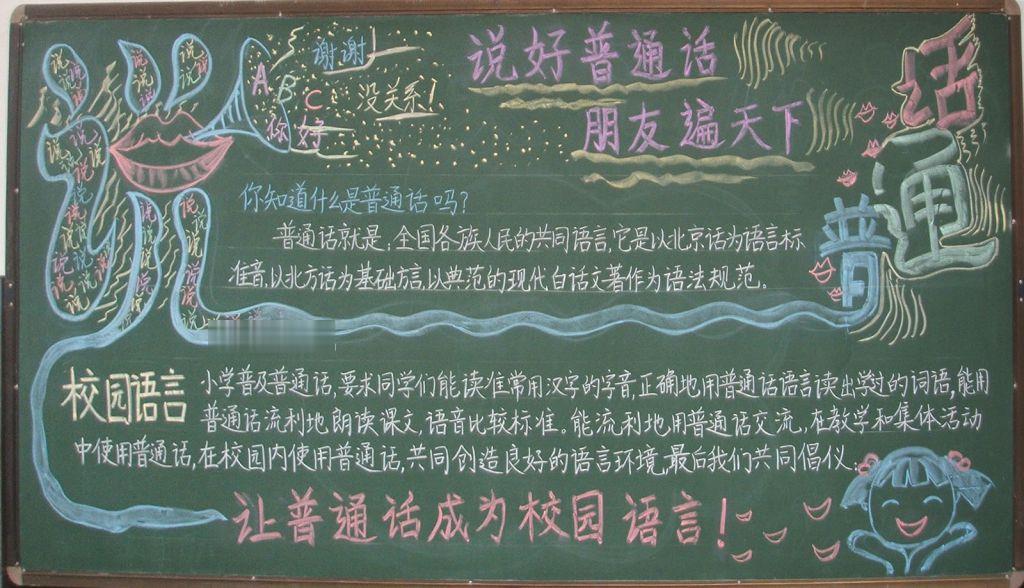 说
谢谢!
A B C
没关系!
你好
说好普通话
朋友遍天下
普通话
你知道什么是普通话吗?
普通话就是:全国各族人民的共同语言,它是以北京话为语言标
准音,以北方话为基础方言,以典范的现代白话文著作为语法规范。
校园语言
小学普及普通话,要求同学们能读准常用汉字的字音,正确地用普通话语言读出学过的词语,能用
普通话流利地朗读课文,语音比较标准。能流利地用普通话交流,在教学和集体活动
中使用普通话,在校园内使用普通话,共同创造良好的语言环境,最后我们共同倡仪:
让普通话成为校园语言!